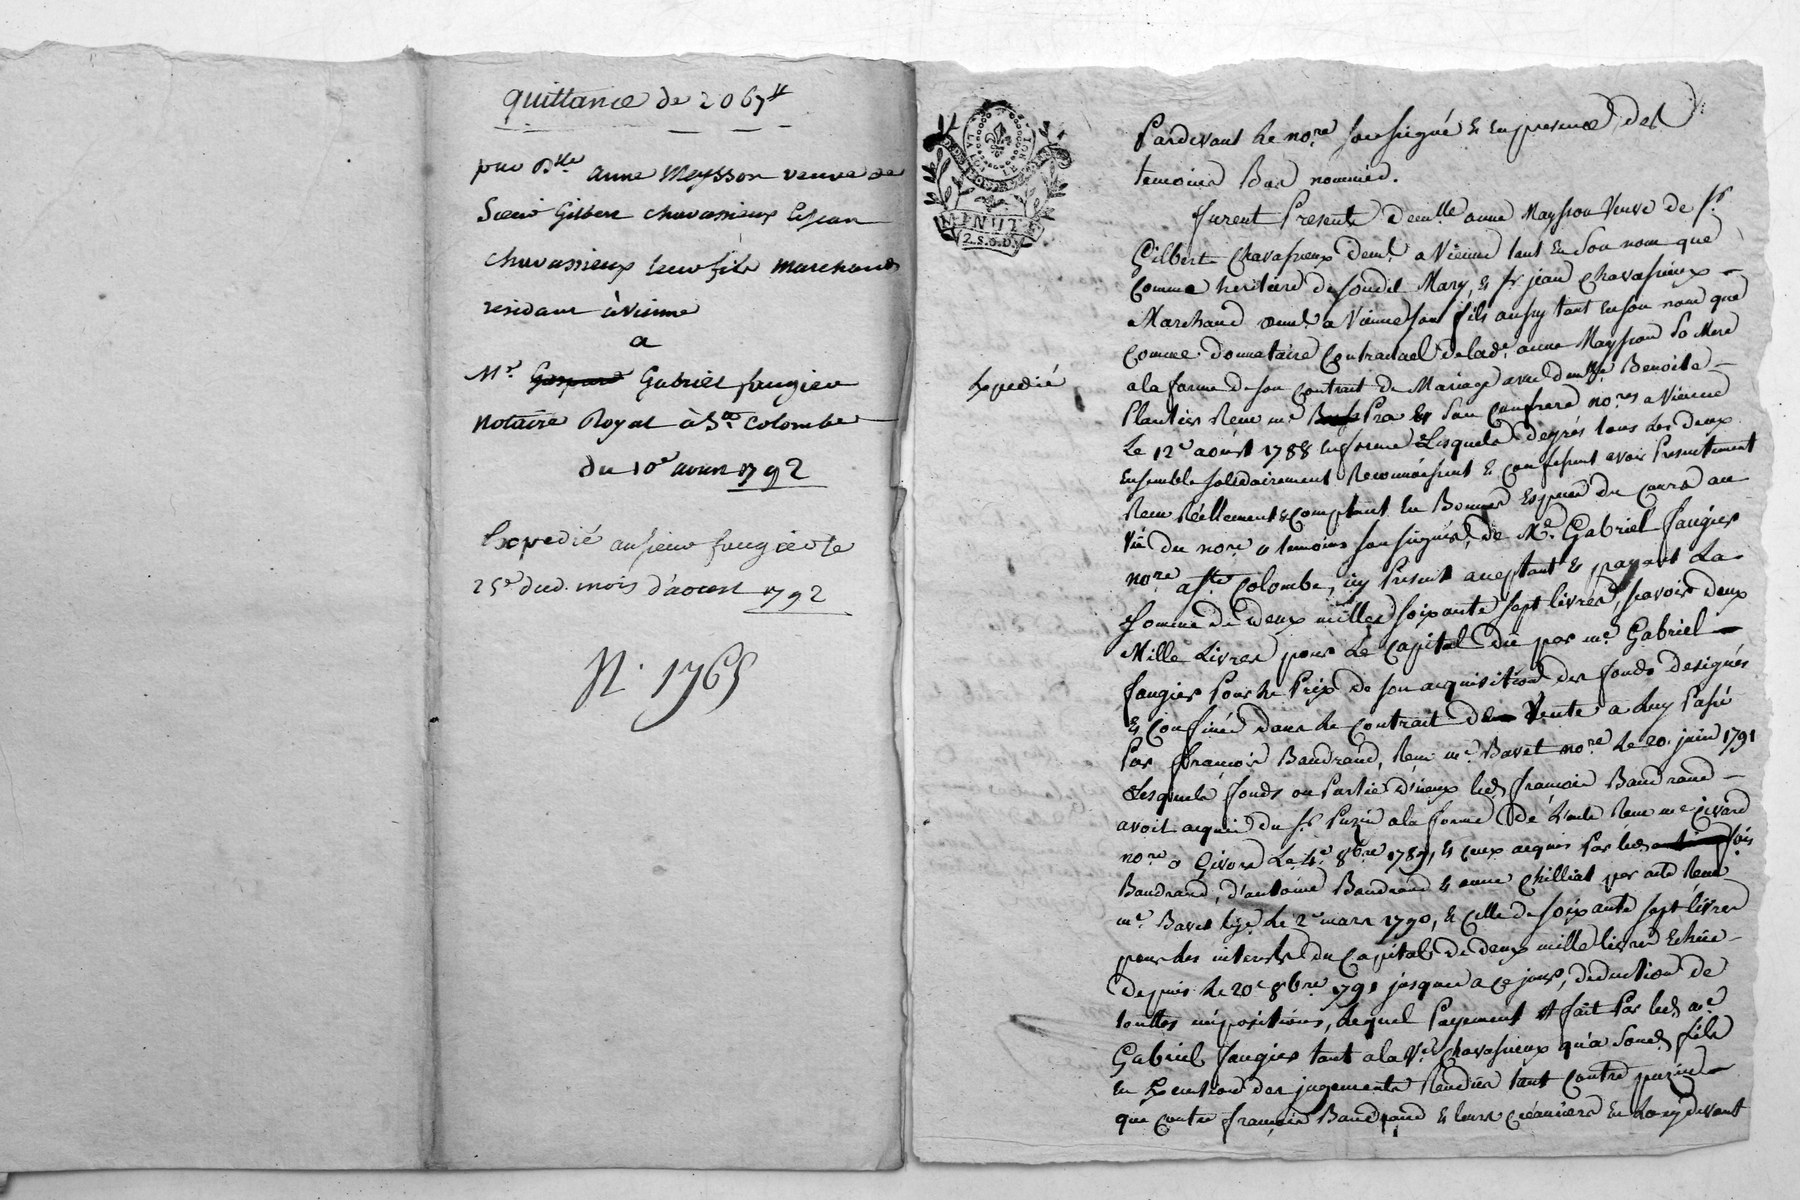 quittance de 2067 ₶
par Dlle anne Meysson veuve de
Sieur Gilbert chavassieux & jean
chavassieux leur fils marchands
residant à Vienne
a
Mr. Gaspard Gabriel faugier
Notaire Royal à Ste Colombe
du 10e aoust 1792
Expedié au sieur faugier le
25e dud. mois d'aoust 1792
N. 1765
LA LOI LE ROI
MINUTE
2.S.6.D.
Expedié
Pardevant le nore soussigné & en presence des
temoins Bas nommés.
furent Presents demlle anne Maysson Veuve de Sr
Gilbert Chavassieux demt. a Vienne tant en son nom que
Comme heritiere de soudit Mary, & sr jean Chavassieux
Marchand demt. a Vienne son fils aussy tant en son nom que
Comme donnataire Contractuel de lade. anne Maysson Sa Mere
a la forme de son Contrait de Mariage avec demlle. Benoite
Plantier Reçu me Pra & son Confrere nores a Vienne
Le 12e août 1788 en forme Lesquels de grés tous les deux
Ensemble solidairement Reconnaissent & confessent avoir Presentement
Reçu Réellement & comptant en Bonnes Especes du Cours au
Vû du nore & temoins soussignés, de Me. Gabriel faugier
nore a Ste. Colombe, icy Present acceptant & payant La
Somme de deux milles soixante sept livres, sçavoir deux
Mille Livres pour Le Capital dû par me. Gabriel
faugier Pour le Prix de son acquisition des fonds designés
& Confinés dans Le Contrait de Vente a Luy Passé
Par françois Baudrand, Reçu me. Bavet nore Le 20. juin 1791
Lesquels fonds ou Partie d'iceux led. françois Baudrand
avoit acquis du Sr. Puzin a la forme de L'acte Reçu me Civard
nore a Givors Le 4e. 8bre 1789, & ceux acquis Par led. fois
Baudrand, d'antoine Baudrand & anne Chilliat par acte Reçu
me. Bavet Le 2e mars 1790, & celle de soixante sept livres
pour les interets du Capital de deux mille livres Echûs
depuis Le 20e 8bre. 1791 jusques a ce jour, deduction de
touttes impositions, Lequel Payement est fait Par led. me.
Gabriel faugier tant a la Ve. Chavassieux qu'a Soud. fils
en Execution des jugements Rendus tant Contre puzin
que Contre françois Baudrand & leurs créanciers En devant